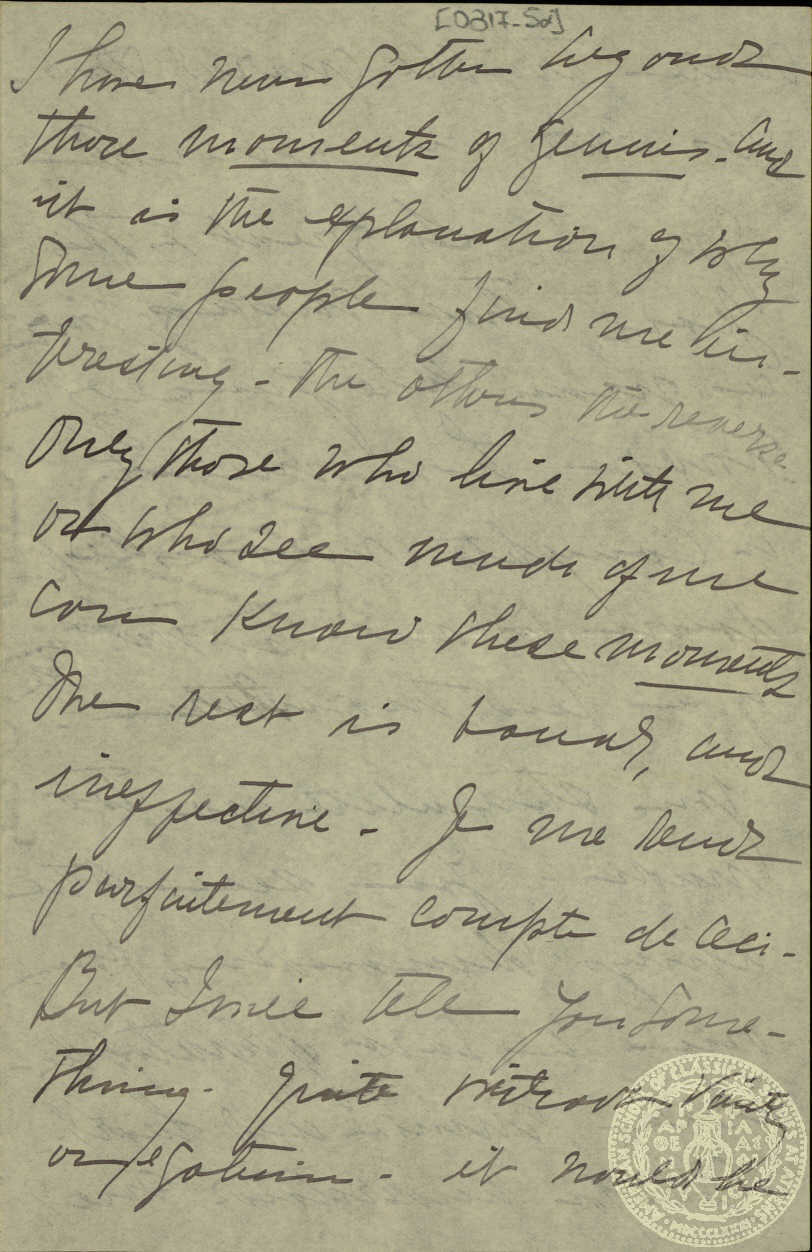 [0317-5a]
I have never gotten beyond
those moments of genius. and
it is the explanation of why
some people find me in-
teresting - the others the reverse.
Only those who live with me
or who see much of me
can know these moments
The rest is banal, and
ineffective - Je me rend
parfaitement compte de ceci -
But I will tell you some-
thing - quite without vanity
or egotism - it would be
AMERICAN SCHOOL OF CLASSICAL STUDIES AT ATHENS
MDCCCLXXXI